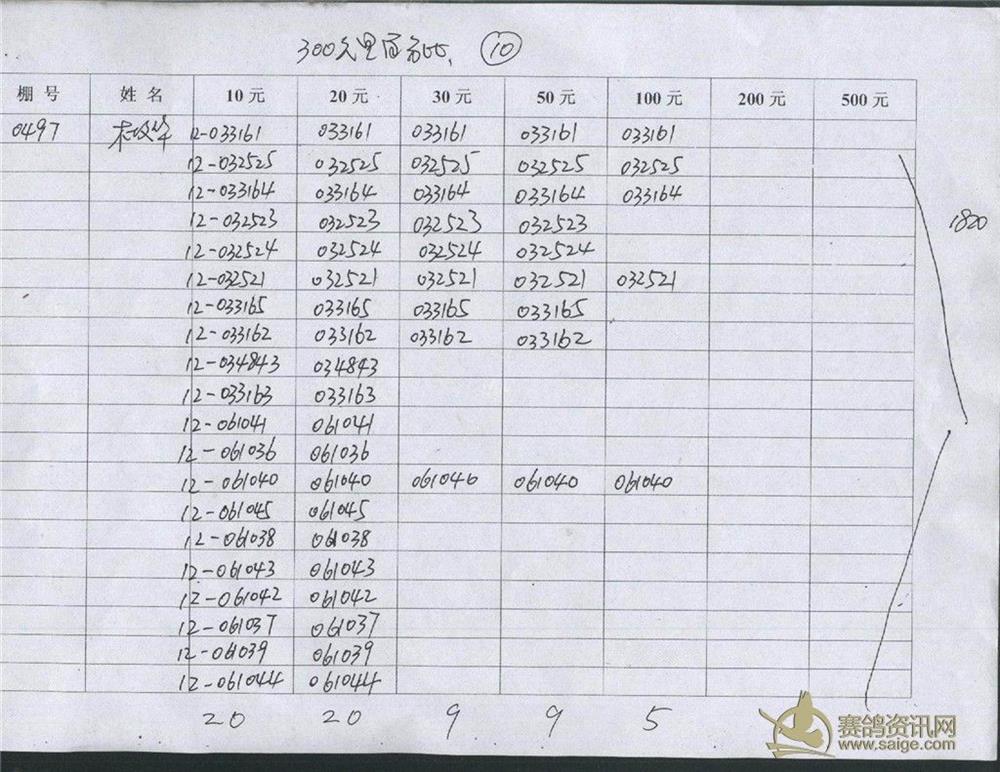 300公里 ⑩
棚 号 姓 名 10 元 20 元 30 元 50 元 100 元 200 元 500 元
0497 12-033161 033161 033161 033161 033161
12-032525 032525 032525 032525 032525
12-033164 033164 033164 033164 033164
12-032523 032523 032523 032523
1820
12-032524 032524 032524 032524
12-032521 032521 032521 032521 032521
12-033165 033165 033165 033165
12-033162 033162 033162 033162
12-034843 034843
12-033163 033163
12-061041 061041
12-061036 061036
12-061040 061040 061040 061040 061040
12-061045 061045
12-061038 061038
12-061043 061043
12-061042 061042
12-061037 061037
12-061039 061039
12-061044 061044
20 20 9 9 5
赛鸽资讯网
www.saige.com